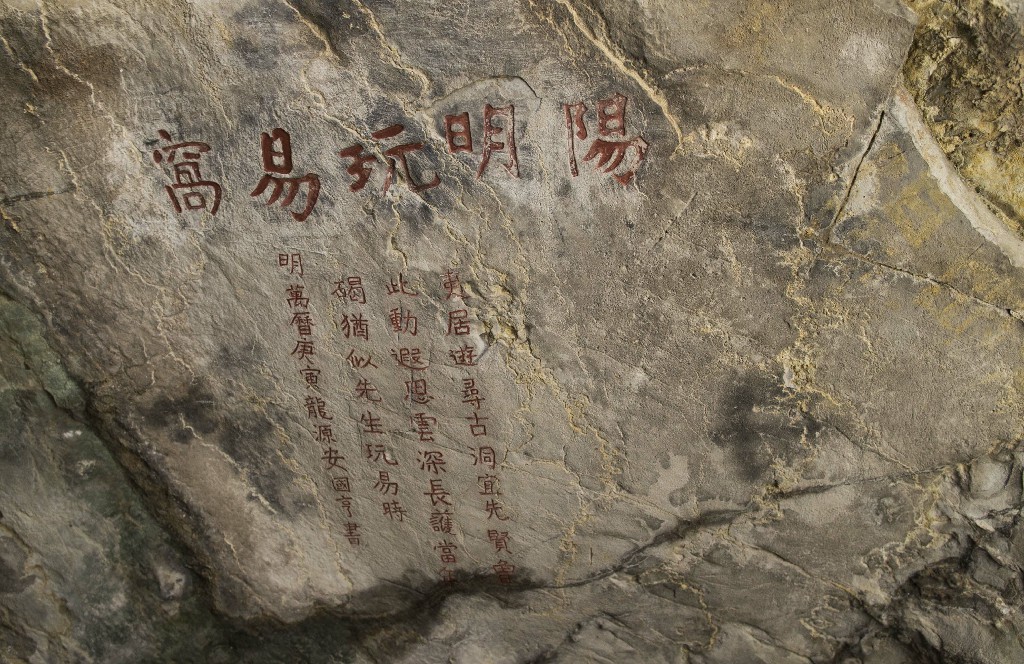 陽明玩易窩
夷居遊尋古洞宜先賢曾
此動遐思雲深長護當年
碣猶似先生玩易時
明萬曆庚寅龍源安國亨書